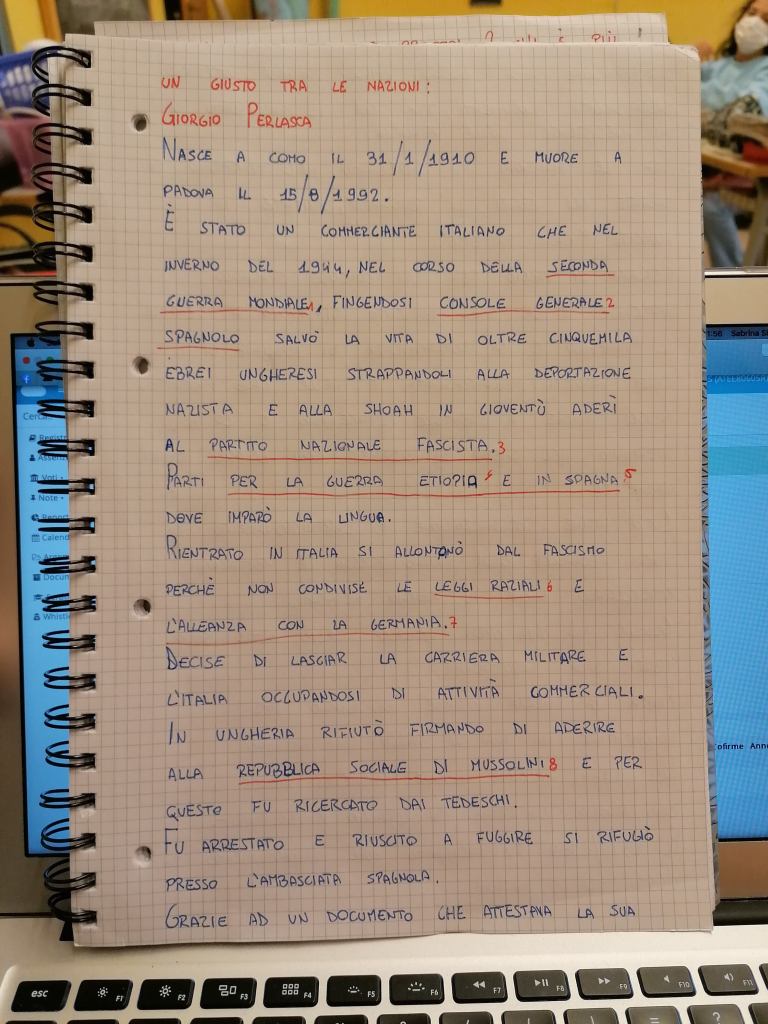 più !
UN GIUSTO TRA LE NAZIONI:
GIORGIO PERLASCA
NASCE A COMO IL 31/1/1910 E MUORE A
PADOVA IL 15/8/1992.
È STATO UN COMMERCIANTE ITALIANO CHE NEL
INVERNO DEL 1944, NEL CORSO DELLA SECONDA
GUERRA MONDIALE1, FINGENDOSI CONSOLE GENERALE2
SPAGNOLO SALVÒ LA VITA DI OLTRE CINQUEMILA
EBREI UNGHERESI STRAPPANDOLI ALLA DEPORTAZIONE
NAZISTA E ALLA SHOAH IN GIOVENTÙ ADERÌ
AL PARTITO NAZIONALE FASCISTA.3
PARTI PER LA GUERRA ETIOPIA 4 E IN SPAGNA5
DOVE IMPARÒ LA LINGUA.
RIENTRATO IN ITALIA SI ALLONTANÒ DAL FASCISMO
PERCHÈ NON CONDIVISE LE LEGGI RAZIALI6 E
L'ALLEANZA CON LA GERMANIA.7
DECISE DI LASCIAR LA CARRIERA MILITARE E
L'ITALIA OCCUPANDOSI DI ATTIVITÀ COMMERCIALI.
IN UNGHERIA RIFIUTÒ FIRMANDO DI ADERIRE
ALLA REPUBBLICA SOCIALE DI MUSSOLINI8 E PER
QUESTO FU RICERCATO DAI TEDESCHI.
FU ARRESTATO E RIUSCITO A FUGGIRE SI RIFUGIÒ
PRESSO L'AMBASCIATA SPAGNOLA.
GRAZIE AD UN DOCUMENTO CHE ATTESTAVA LA SUA
esc F1 F2 F3 F4 F5 F6 F7 F8 F9 F10 F11